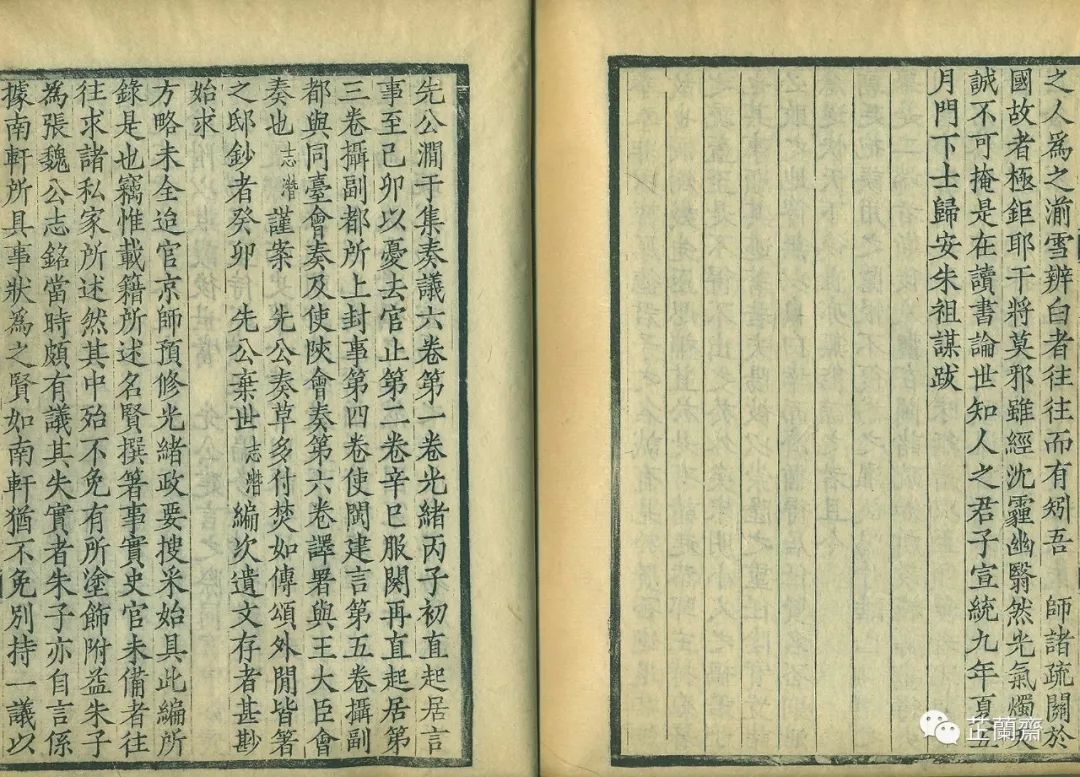 之人為之湔雪辨白者往往而有矧吾 師諸疏關於
國故者極鉅耶干將莫邪雖經沈霾幽翳然光氣燭天
誠不可掩是在讀書論世知人之君子宣統九年夏五
月門下士歸安朱祖謀跋
先公澗于集奏議六卷第一卷光緒丙子初直起居言
事至己卯以憂去官止第二卷辛巳服闋再直起居第
三卷攝副都所上封事第四卷使閩建言第五卷攝副
都與同臺會奏及使陝會奏第六卷譯署與王大臣會
奏也志潛謹案 先公奏草多付焚如傳頌外閒皆箸
之邸鈔者癸卯 先公棄世志潛編次遺文存者甚尠
始求
方略未全迨官京師預修光緒政要搜采始具此編所
錄是也竊惟載籍所述名賢撰箸事實史官未備者往
往求諸私家所述然其中殆不免有所塗飾附益朱子
為張魏公志銘當時頗有議其失實者朱子亦自言係
據南軒所具事狀為之賢如南軒猶不免別持一議以
芷蘭齋